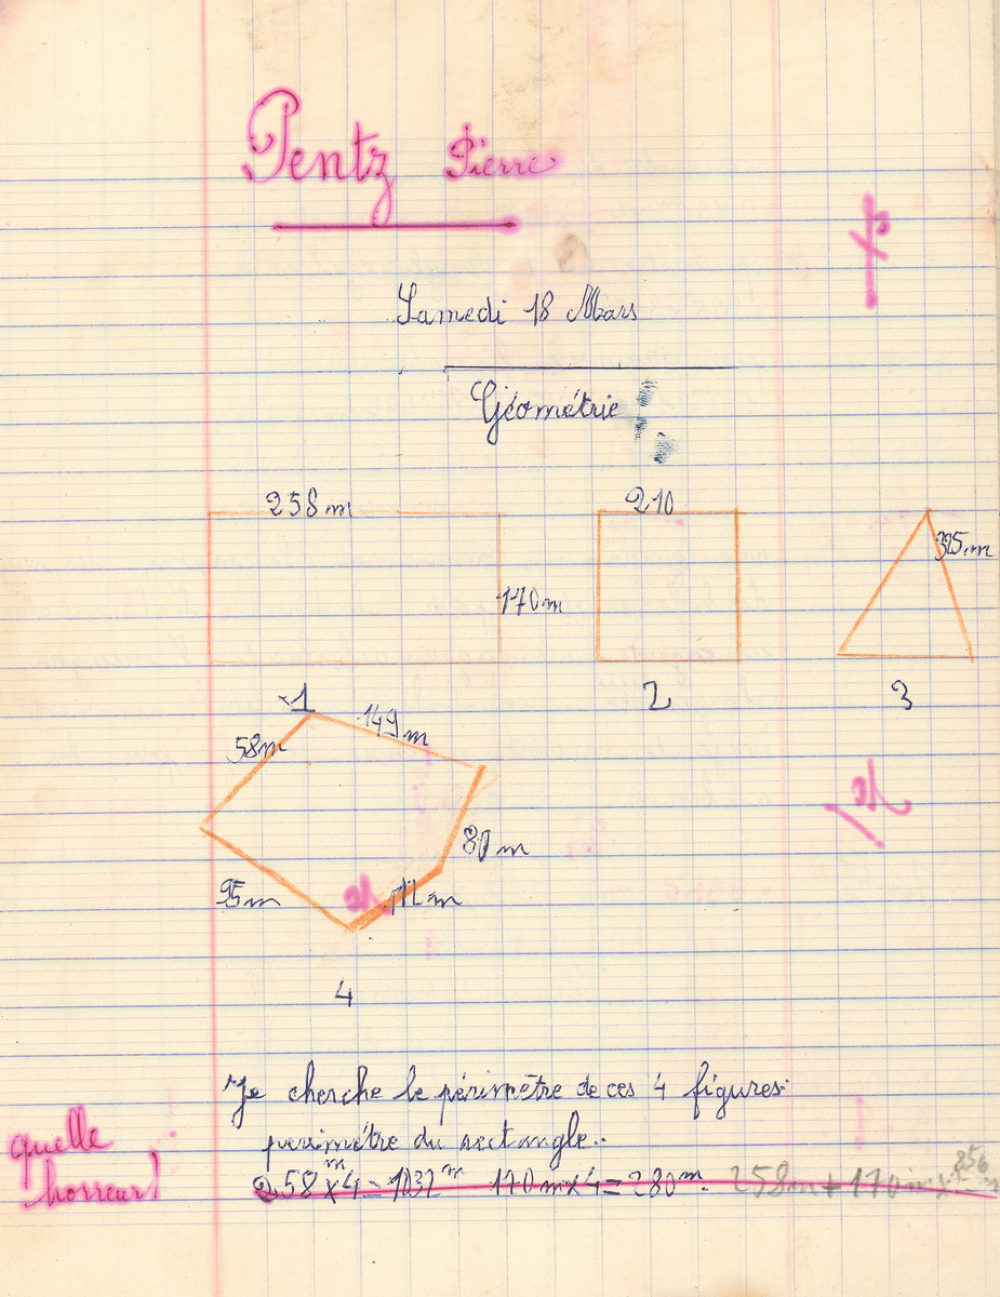 Pentz Pierre
Samedi 18 Mars
Géométrie
258 m
210
325 m
170 m
1
2
3
149 m
58 m
80 m
95 m
m
4
Je cherche le périmètre de ces 4 figures.
périmétre du rectangle..
quelle
horreur!
258 m x 4 = 1032 m 170 m x 4 = 280 m. 258 m + 170 m x